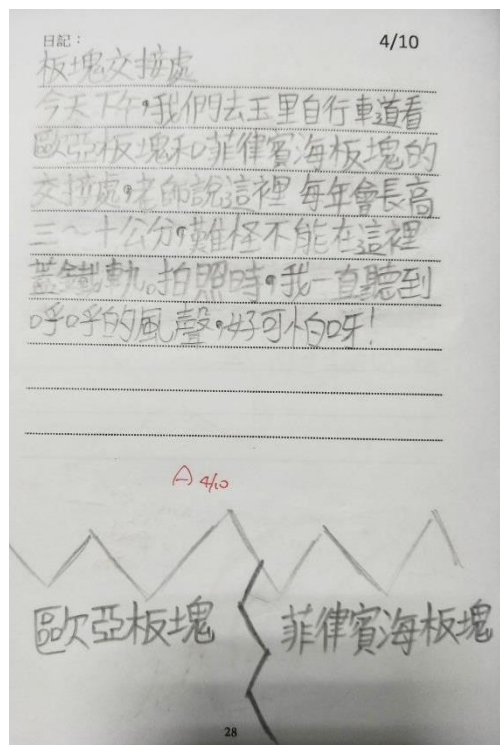 日記：
4/10
板塊交接處
今天下午，我們去玉里自行車道看
歐亞板塊和菲律賓海板塊的
交接處，老師說這裡每年會長高
三～十公分，難怪不能在這裡
蓋鐵軌。拍照時，我一直聽到
呼呼的風聲，好可怕呀！
A 4/10
歐亞板塊
菲律賓海板塊
28